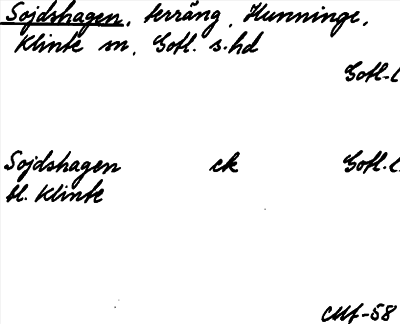 Sojdshagen, terräng, Hunninge,
Klinte sn, Gotl. s. hd
Gotl. l
Sojdshagen ck Gotl. l.
bl. Klinte
CMf-58